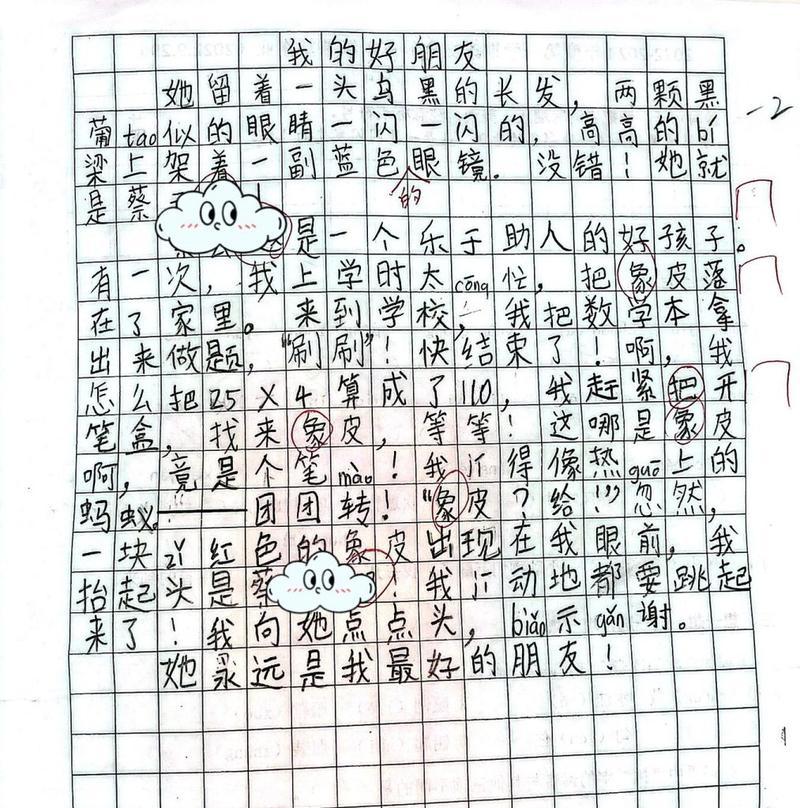 我的好朋友
她留着一头乌黑的长发，两颗黑
葡tao似的眼睛一闪一闪的，高高的bí
梁上架着一副蓝色眼镜.没错！她就
的
是蔡
是一个乐于助人的好孩子。
有一次，我上学时太cōng忙，把象皮落
在了家里。来到学校，我把数学本拿
出来做题，“刷刷”！快结束了！啊，我
怎么把25×4算成了110，我赶紧把开
笔盒，找来象皮，等等！这哪是象皮
啊，竟是个笔mào！我 得像热guō上的
蚂蚁。——团团转！“象皮？给！”忽然，
一块zǐ红色的象皮出现在我眼前，我
抬起头是蔡 ！我 动地都要跳起
来了！我向她点点头，biǎo示gǎn谢。
她永远是我最好的朋友！
-2